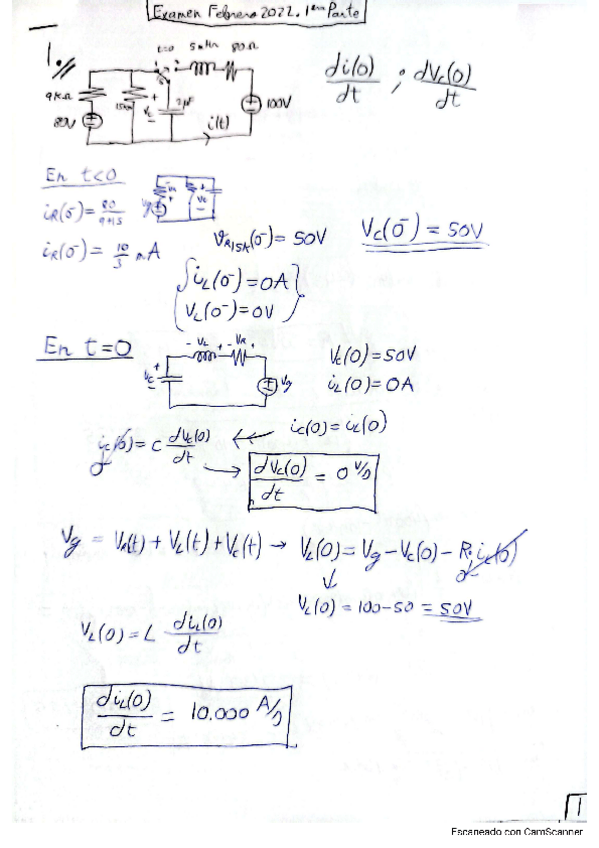 Examen Febrero 2022. 1era Parte
1.//
t=0 5mH 80Ω
9KΩ 15KΩ + Vc - 2μF 100V
80V i(t)
di(0)/dt ; dVc(0)/dt
En t<0
iR(0⁻) = 80/9+15
iR(0⁻) = 10/3 mA
VR15Ω(0⁻) = 50V
Vc(0⁻) = 50V
iL(0⁻) = 0A
VL(0⁻) = 0V
En t=0
- VL + - VR +
+ Vc - Vg
Vc(0) = 50V
iL(0) = 0A
ic(0) = C dVc(0)/dt ← ic(0) = iL(0)
0
→ dVc(0)/dt = 0 V/s
Vg = VR(t) + VL(t) + Vc(t) → VL(0) = Vg - Vc(0) - R·iL(0)
0
VL(0) = 100 - 50 = 50V
VL(0) = L diL(0)/dt
diL(0)/dt = 10.000 A/s
1
Escaneado con CamScanner